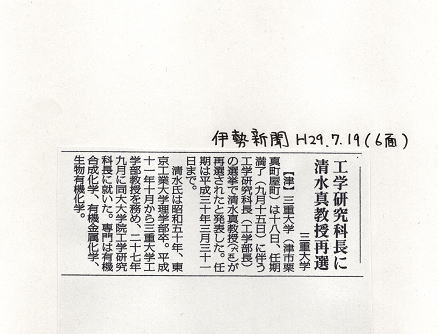 伊勢新聞 H29.7.19(6面)
工学研究科長に
清水真教授再選
三重大学
【津】三重大学(津市栗
真町屋町)は十八日、任期
満了(九月十五日)に伴う
工学研究科長(工学部長)
の選挙で清水真教授が
再選されたと発表した。任
期は平成三十年三月三十一
日まで。
清水氏は昭和五十年、東
京工業大学理学部卒。平成
十一年十月から三重大学工
学部教授を務め、二十七年
九月に同大大学院工学研究
科長に就いた。専門は有機
合成化学、有機金属化学、
生物有機化学。